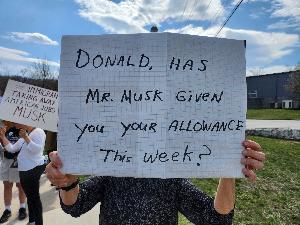 IMMIGRANT
TAKING AWAY
AMERICAN JOBS
MUSK
DONALD, HAS
MR. MUSK GIVEN
YOU YOUR ALLOWANCE
THIS WEEK?